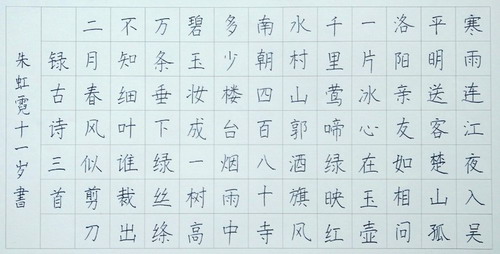 寒雨连江夜入吴
平明送客楚山孤
洛阳亲友如相问
一片冰心在玉壶
千里莺啼绿映红
水村山郭酒旗风
南朝四百八十寺
多少楼台烟雨中
碧玉妆成一树高
万条垂下绿丝绦
不知细叶谁裁出
二月春风似剪刀
録古诗三首
朱虹霓十一岁書